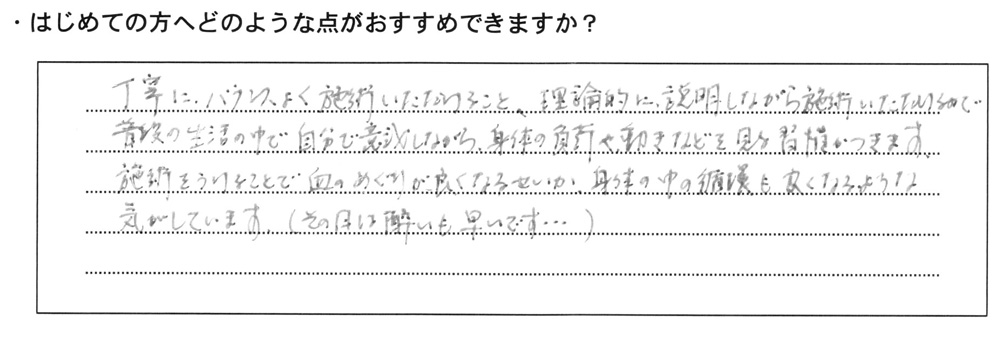 ・はじめての方へどのような点がおすすめできますか？
丁寧に、バランスよく施術いただけること、理論的に、説明しながら施術いただけるので
普段の生活の中で自分で意識しながら、身体の負荷や、動きなどを見る習慣がつきます。
施術をうけることで血のめぐりが良くなるせいか、身体の中の循環も良くなるような
気がしています。（その日は酔いも早いです…）